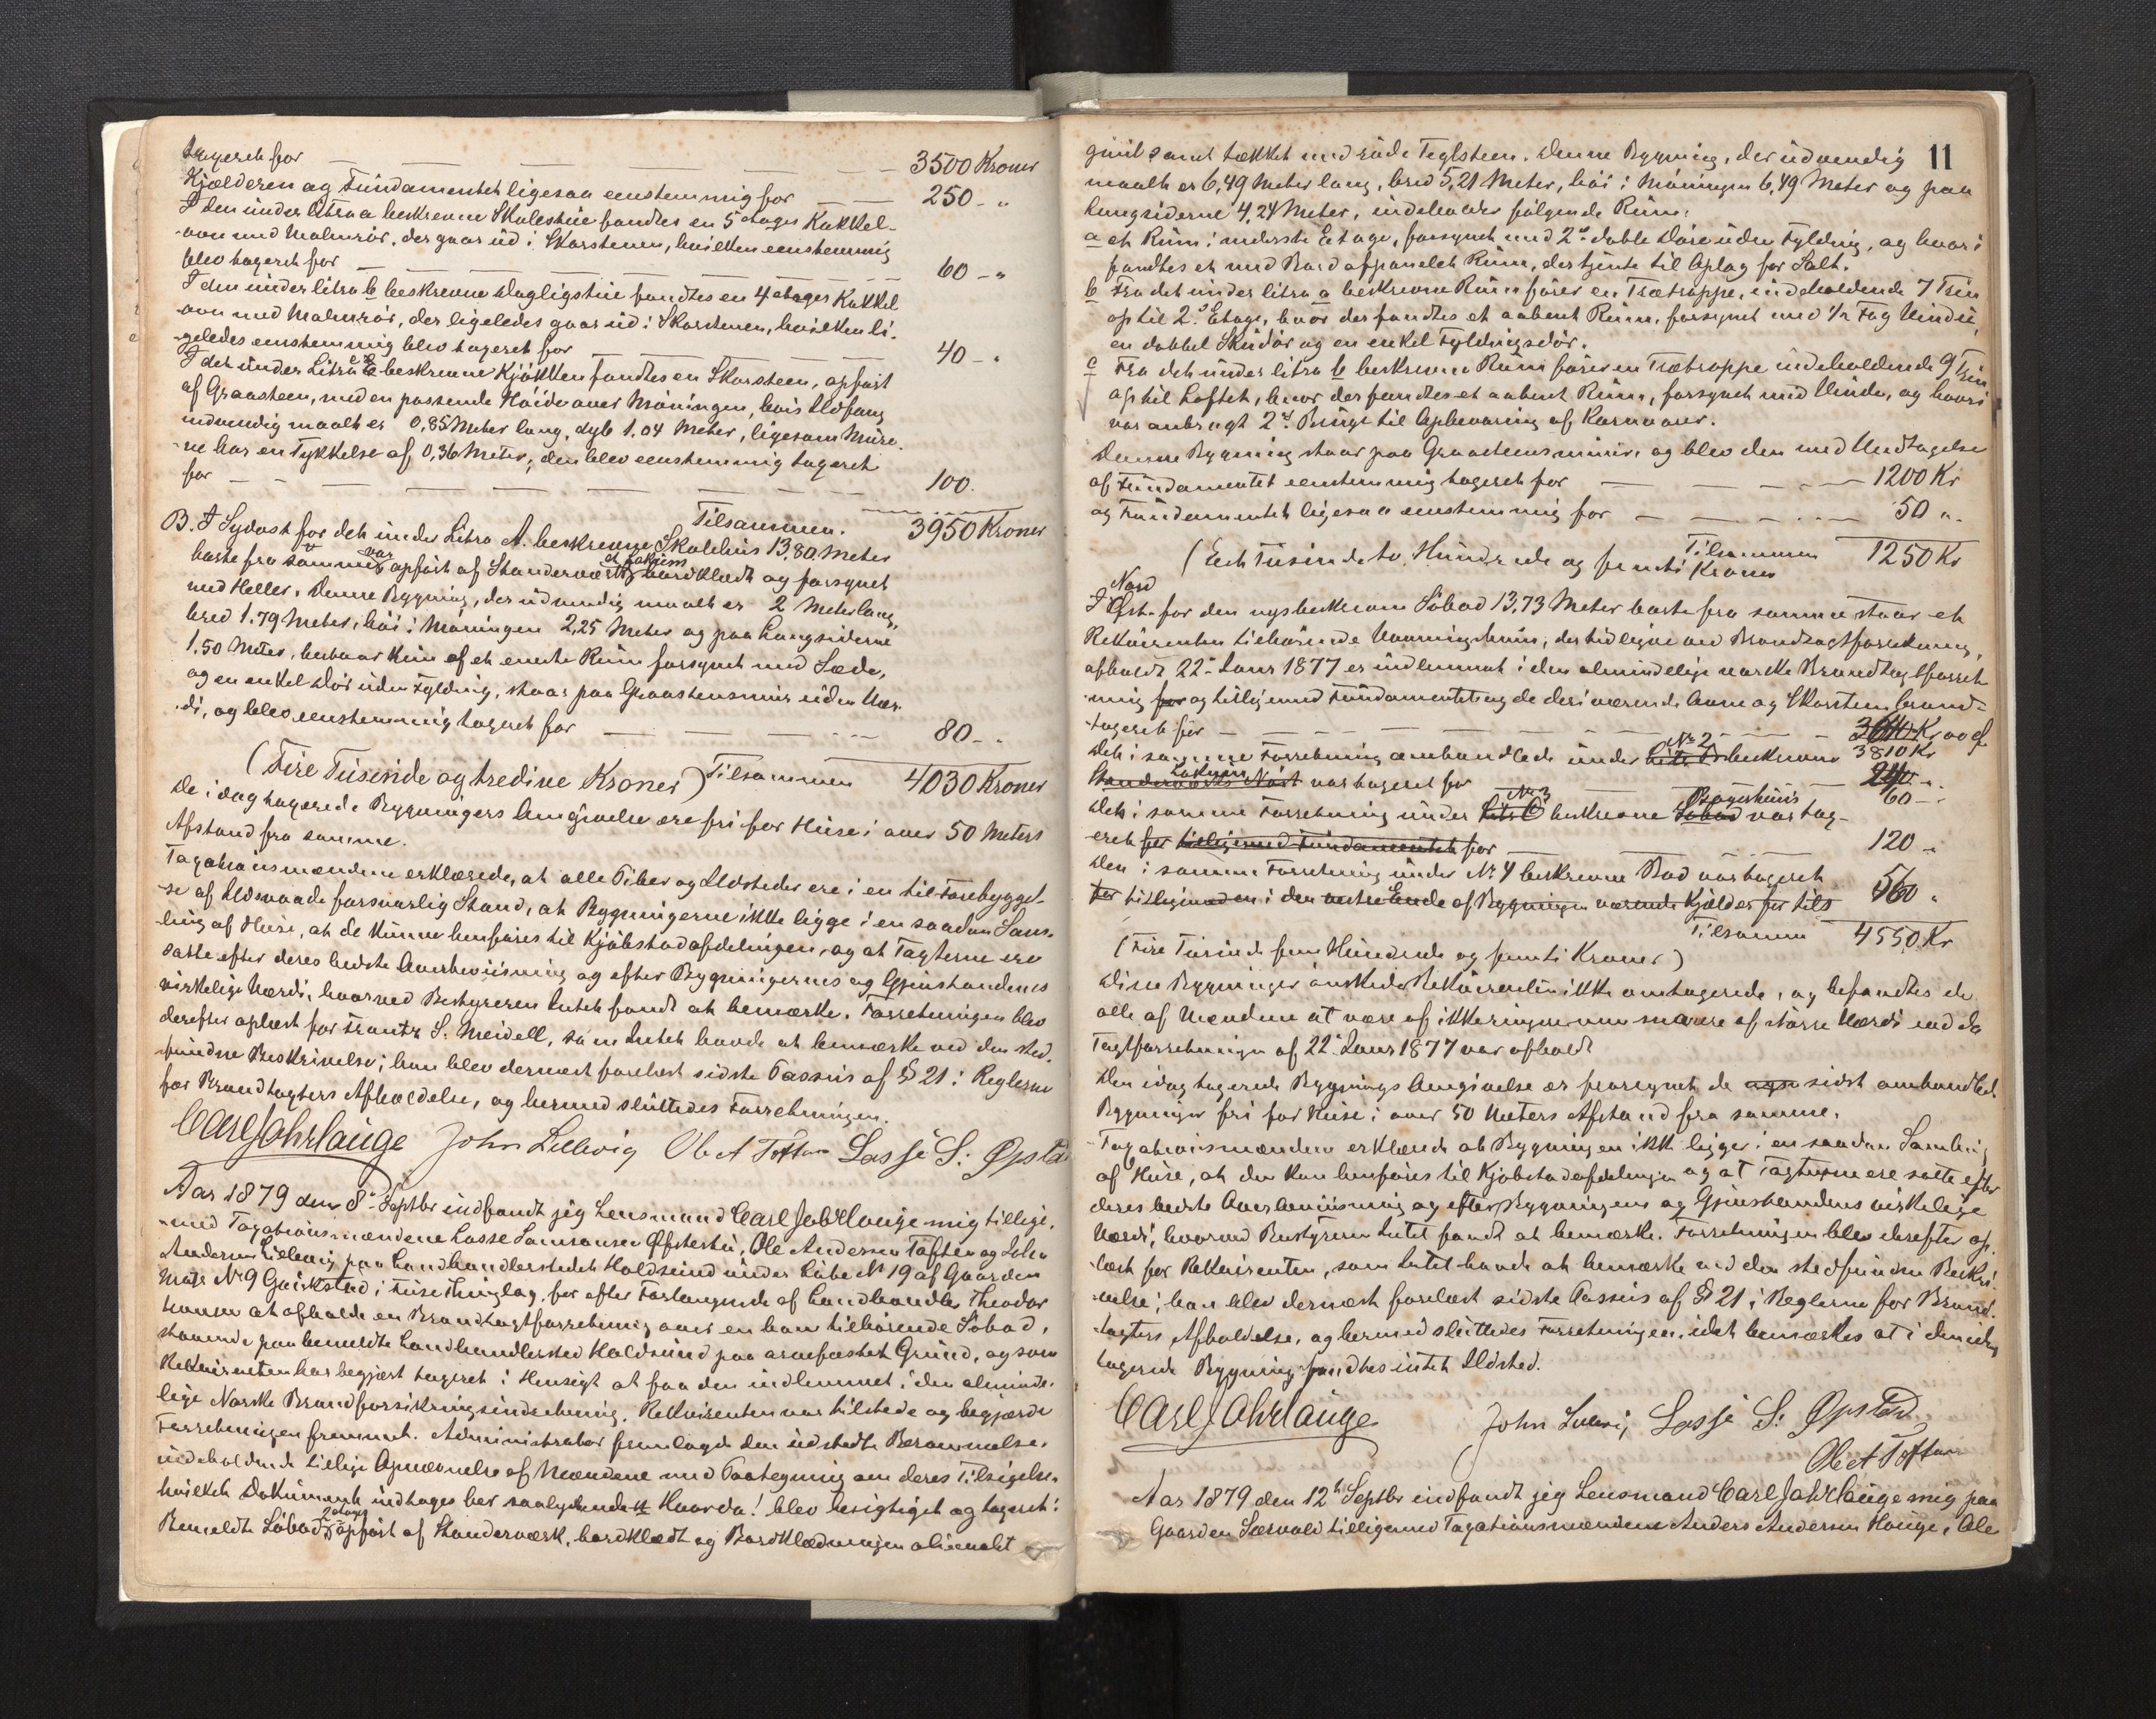 taxeret for — — — — 3500 Kroner
Kjælderen og Fundamentet ligesaa eenstemmig for — — 250 - "
I den under Litra a beskrevne Skolestue fandtes en 5 etages Kakkel-
ovn med Malmrør, der gaar ud i Skorstenen, hvilken eenstemmig
blev taxeret for — — — — 60 - "
I den under litra b beskrevne Dagligstue fandtes en 4 etages Kakkel
ovn med Malmrør, der ligeledes gaar ud i Skorstenen, hvilken li-
geledes eenstemmig blev taxeret for — — — 40 - "
I det under Litra beskrevne Kjøkken fandtes en Skorsteen, opført
af Graasteen, med en passende Høide over Møningen, hvis Udfang
indvendig maalt er 0,85 Meter lang, dyb 1.04 Meter, ligesom Mure-
ne har en Tykkelse af 0,36 Meter; den blev eenstemmig taxeret
for — — — — — — 100.
Tilsammen. 3950 Kroner
B. I Sydost for det under Litra A. beskrevne Skolehus 13,80 Meter
borte fra samme var opført af Standerværk et Lokum bordklædt og forsynet
med Heller. Denne Bygning, der udvendig maalt er 2 Meter lang,
bred 1.79 Meter, høi i Møningen 2,25 Meter og paa Langsiderne
1.50 Meter, bestaar kun af et eneste Rum forsynet med Sæde,
og en enkel Dør uden Fylding, staar paa Graasteensmur uden Vær-
di, og blev eenstemmig taxeret for — — — 80 - "
(Fire Tusinde og tredive Kroner) Tilsammen 4030 Kroner
De i dag taxerede Bygningers Omgivelse ere fri for Huse i over 50 Meters
Afstand fra samme.
Taxationsmændene erklærede, at alle Piber og Ildsteder ere i en til Forebyggel-
se af Ildsvaade forsvarlig Stand, at Bygningerne ikke ligge i en saadan Sam-
ling af Huse, at de kunne henføres til Kjøbstadafdelingen, og at Taxterne ere
satte efter deres bedste Overbeviisning og efter Bygningernes og Gjenstandenes
virkelige Værdi, hvorved Bestyreren Intet fandt at bemærke. Forretningen blev
derefter oplæst for Frantz S. Meidell, som Intet havde at bemærke ved den sted-
fundne Beskrivelse; han blev dernæst forelæst sidste Passus af § 21 i Reglerne
for Brandtaxters Afholdelse, og hermed sluttedes Forretningen.
Carl Johr Lauge John Lillevig Ole A Toften Lasse S. Øpsta
Aar 1879 den 8de Septbr indfandt jeg Lensmand Carl Johr Lauge mig tillige-
med Taxationsmændene Lasse Samsonsen Øpstestu, Ole Andersen Toften og John
Andersen Lillevig paa Landhandlerstedet Holdsund under Løbe No 19 af Gaarden
Matr No 9 i Fuse Thinglag, for efter Forlangende af Landhandler Theodor
at afholde en Brandtaxtforretning over en ham tilhørende Søbod,
staaende paa bemeldte Landhandlersted Holdsund paa arvefæstet Grund, og som
Rekvirenten har begjært taxeret i Hensigt at faa den indlemmet i den alminde-
lige Norske Brandforsikringsindretning. Rekvirenten var tilstede og begjærede
Forretningen fremmet. Administrator fremlagde den udstedte Berammelse,
indeholdende tillige Opnævnelse af Mændene med Paategning om deres Tilsigelse,
hvilket Dokument indtages her saalydende Hvorda! blev besigtiget og taxeret:
Bemeldte Søbod, 2 etages opført af Standerværk, bordklædt og Bordklædningen oliemalt
11
guul samt tækket med røde Teglsteen. Denne Bygning, der udvendig
maalt er 6,49 Meter lang, bred 5,21 Meter, høi i Møningen 6,49 Meter og paa
Langsiderne 4,24 Meter, indeholder følgende Rum:
a et Rum i nederste Etage, forsynet med 2de doble Døre uden Fylding, og hvori
fandtes et med Bord afpanelet Rum, der tjente til Oplag for Salt.
b Fra det under litra a beskrevne Rum fører en Trætrappe, indeholdende 7 Trin
op til 2den Etage, hvor der fandtes et aabent Rum, forsynet med 1/2 Fag Vindu,
en dobbel Skudør og en enkel Fyldingsdør.
c Fra det under litra b beskrevne Rum fører en Trætrappe indeholdende 9 Trin
op til Loftet, hvor der fandtes et aabent Rum, forsynet med Vindu, og hvori
var anbragt 2de Binge til Opbevaring af Kornvarer.
Denne Bygning staar paa Graasteensmur, og blev den med Undtagelse
af Fundamentet eenstemmig taxeret for — — — 1200 Kr
og Fundamentet ligesaa eenstemmig for — — — 50 "
Tilsammen 1250 Kr
(Eet Tusinde to Hundrede og femti Kroner
I Nord Øst for den nysbeskrevne Søbod 13,73 Meter borte fra samme staar et
Rekvirenten tilhørende Vaaningshuus, der tidligere ved Brandtaxtforretning,
afholdt 22de Janr 1877 er indlemmet i den almindelige norske Brandtaxtforret-
ning for og tilligemed Fundamentet og de deri værende Ovne og Skorsten brand-
taxeret for — — — — Kr og
Det i samme Forretning omhandlede under No 2 beskrevne 3810 Kr
Lokum var taxeret for 60 - "
Det i samme Forretning under No 3 beskrevne Bagerhuus var tax-
eret for tilligemed Fundamentet for — — 120 "
Den i samme Forretning under No 4 beskrevne Bod var taxeret
for tilligemed en i den vestre Ende af Bygningen værende Kjælder for tils 560 "
Tilsammen 4550 Kr
(Fire Tusinde fem Hundrede og femti Kroner)
Disse Bygninger ønskede Rekvirenten ikke omtaxerede, og befandtes de
alle af Mændene at være af ikke ringere men snarere af større Værdi end da
Taxtforretningen af 22de Janr 1877 var afholdt
Den idag taxerede Bygnings Omgivelse er foruden de sidst omhandlede
Bygninger fri for Huse i over 50 Meters Afstand fra samme.
Taxationsmændene erklærede at Bygningen ikke ligger i en saadan Samling
af Huse, at den kan henføres til Kjøbstadafdelingen og at Taxterne ere satte efter
deres bedste Overbeviisning og efter Bygningens og Gjenstandens virkelige
Værdi, hvorved Bestyreren Intet fandt at bemærke. Forretningen blev derefter op-
læst for Rekvirenten, som Intet havde at bemærke ved den stedfundne Beskri-
velse; han blev dernæst forelæst sidste Passus af § 21 i Reglerne for Brand-
taxters Afholdelse, og hermed sluttedes Forretningen, idet bemærkes at i den idag
taxerede Bygning fandtes intet Ildsted.
Carl Johr Lauge John Lillevig Lasse S. Øpstad
Ole A Toften
Aar 1879 den 12te Septbr indfandt jeg Lensmand Carl Johr Lauge mig paa
Gaarden Sævold tilligemed Taxationsmændene Anders Andersen Hauge, Ole